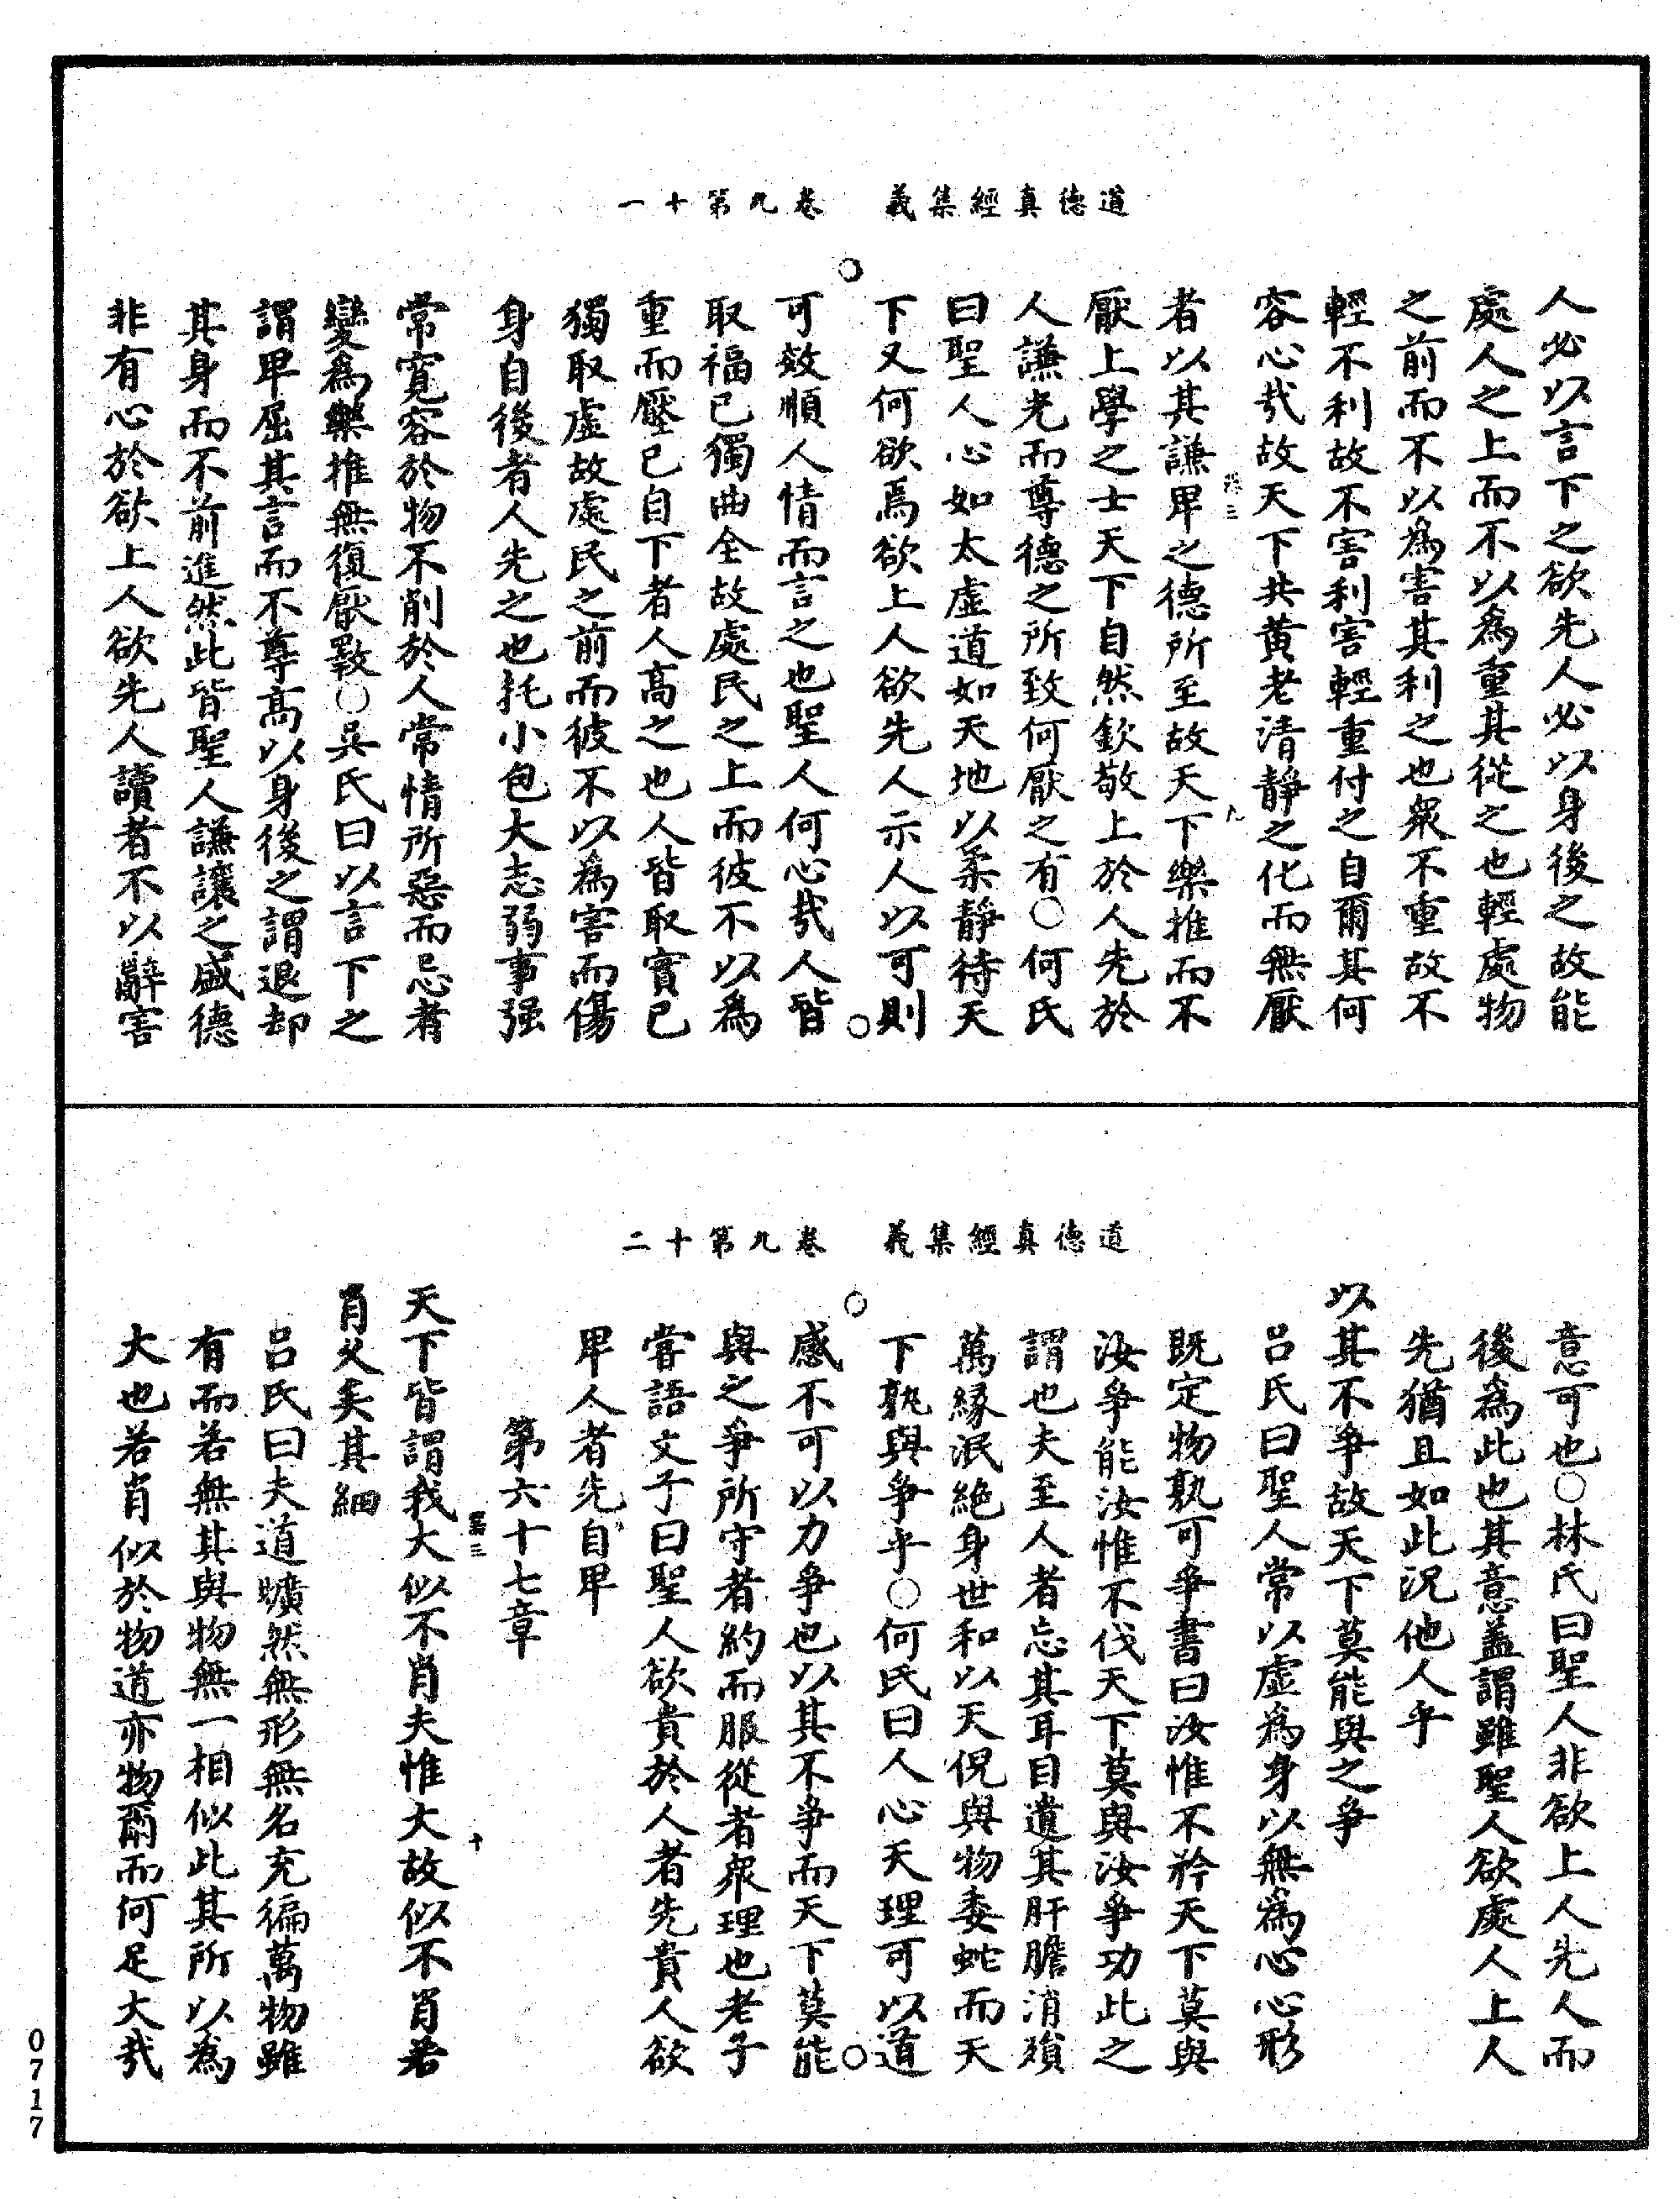 道德真經集義　卷九第十一
人必以言下之欲先人必以身後之故能
處人之上而不以為重其從之也輕處物
之前而不以為害其利之也衆不重故不
輕不利故不害利害輕重付之自爾其何
容心哉故天下共黄老清靜之化而無厭
者以其謙卑之德所至故天下樂推而不
厭上學之士天下自然欽敬上於人先於
人謙光而尊德之所致何厭之有○何氏
曰聖人心如太虛道如天地以柔靜待天
下又何欲焉欲上人欲先人示人以可則
可效順人情而言之也聖人何心哉人皆
取福己獨曲全故處民之上而彼不以為
重而壓己自下者人高之也人皆取實己
獨取虛故處民之前而彼不以為害而傷
身自後者人先之也托小包大志弱事强
常寬容於物不削於人常情所惡而忌者
變為樂推無復厭斁○吳氏曰以言下之
謂卑屈其言而不尊高以身後之謂退却
其身而不前進然此皆聖人謙讓之盛德
非有心於欲上人欲先人讀者不以辭害
道德真經集義　卷九第十二
意可也○林氏曰聖人非欲上人先人而
後為此也其意蓋謂雖聖人欲處人上人
先猶且如此況他人乎
以其不爭故天下莫能與之爭
吕氏曰聖人常以虛為身以無為心心形
既定物孰可爭書曰汝惟不矜天下莫與
汝爭能汝惟不伐天下莫與汝爭功此之
謂也夫至人者忘其耳目遺其肝膽消殞
萬緣泯絕身世和以天倪與物委蛇而天
下孰與爭乎○何氏曰人心天理可以道
感不可以力爭也以其不爭而天下莫能
與之爭所守者約而服從者衆理也老子
嘗語文子曰聖人欲貴於人者先貴人欲
卑人者先自卑
第六十七章
天下皆謂我大似不肖夫惟大故似不肖若
肖久矣其細
吕氏曰夫道曠然無形無名充徧萬物雖
有而若無其與物無一相似此其所以為
大也若肖似於物道亦物爾而何足大哉
0717